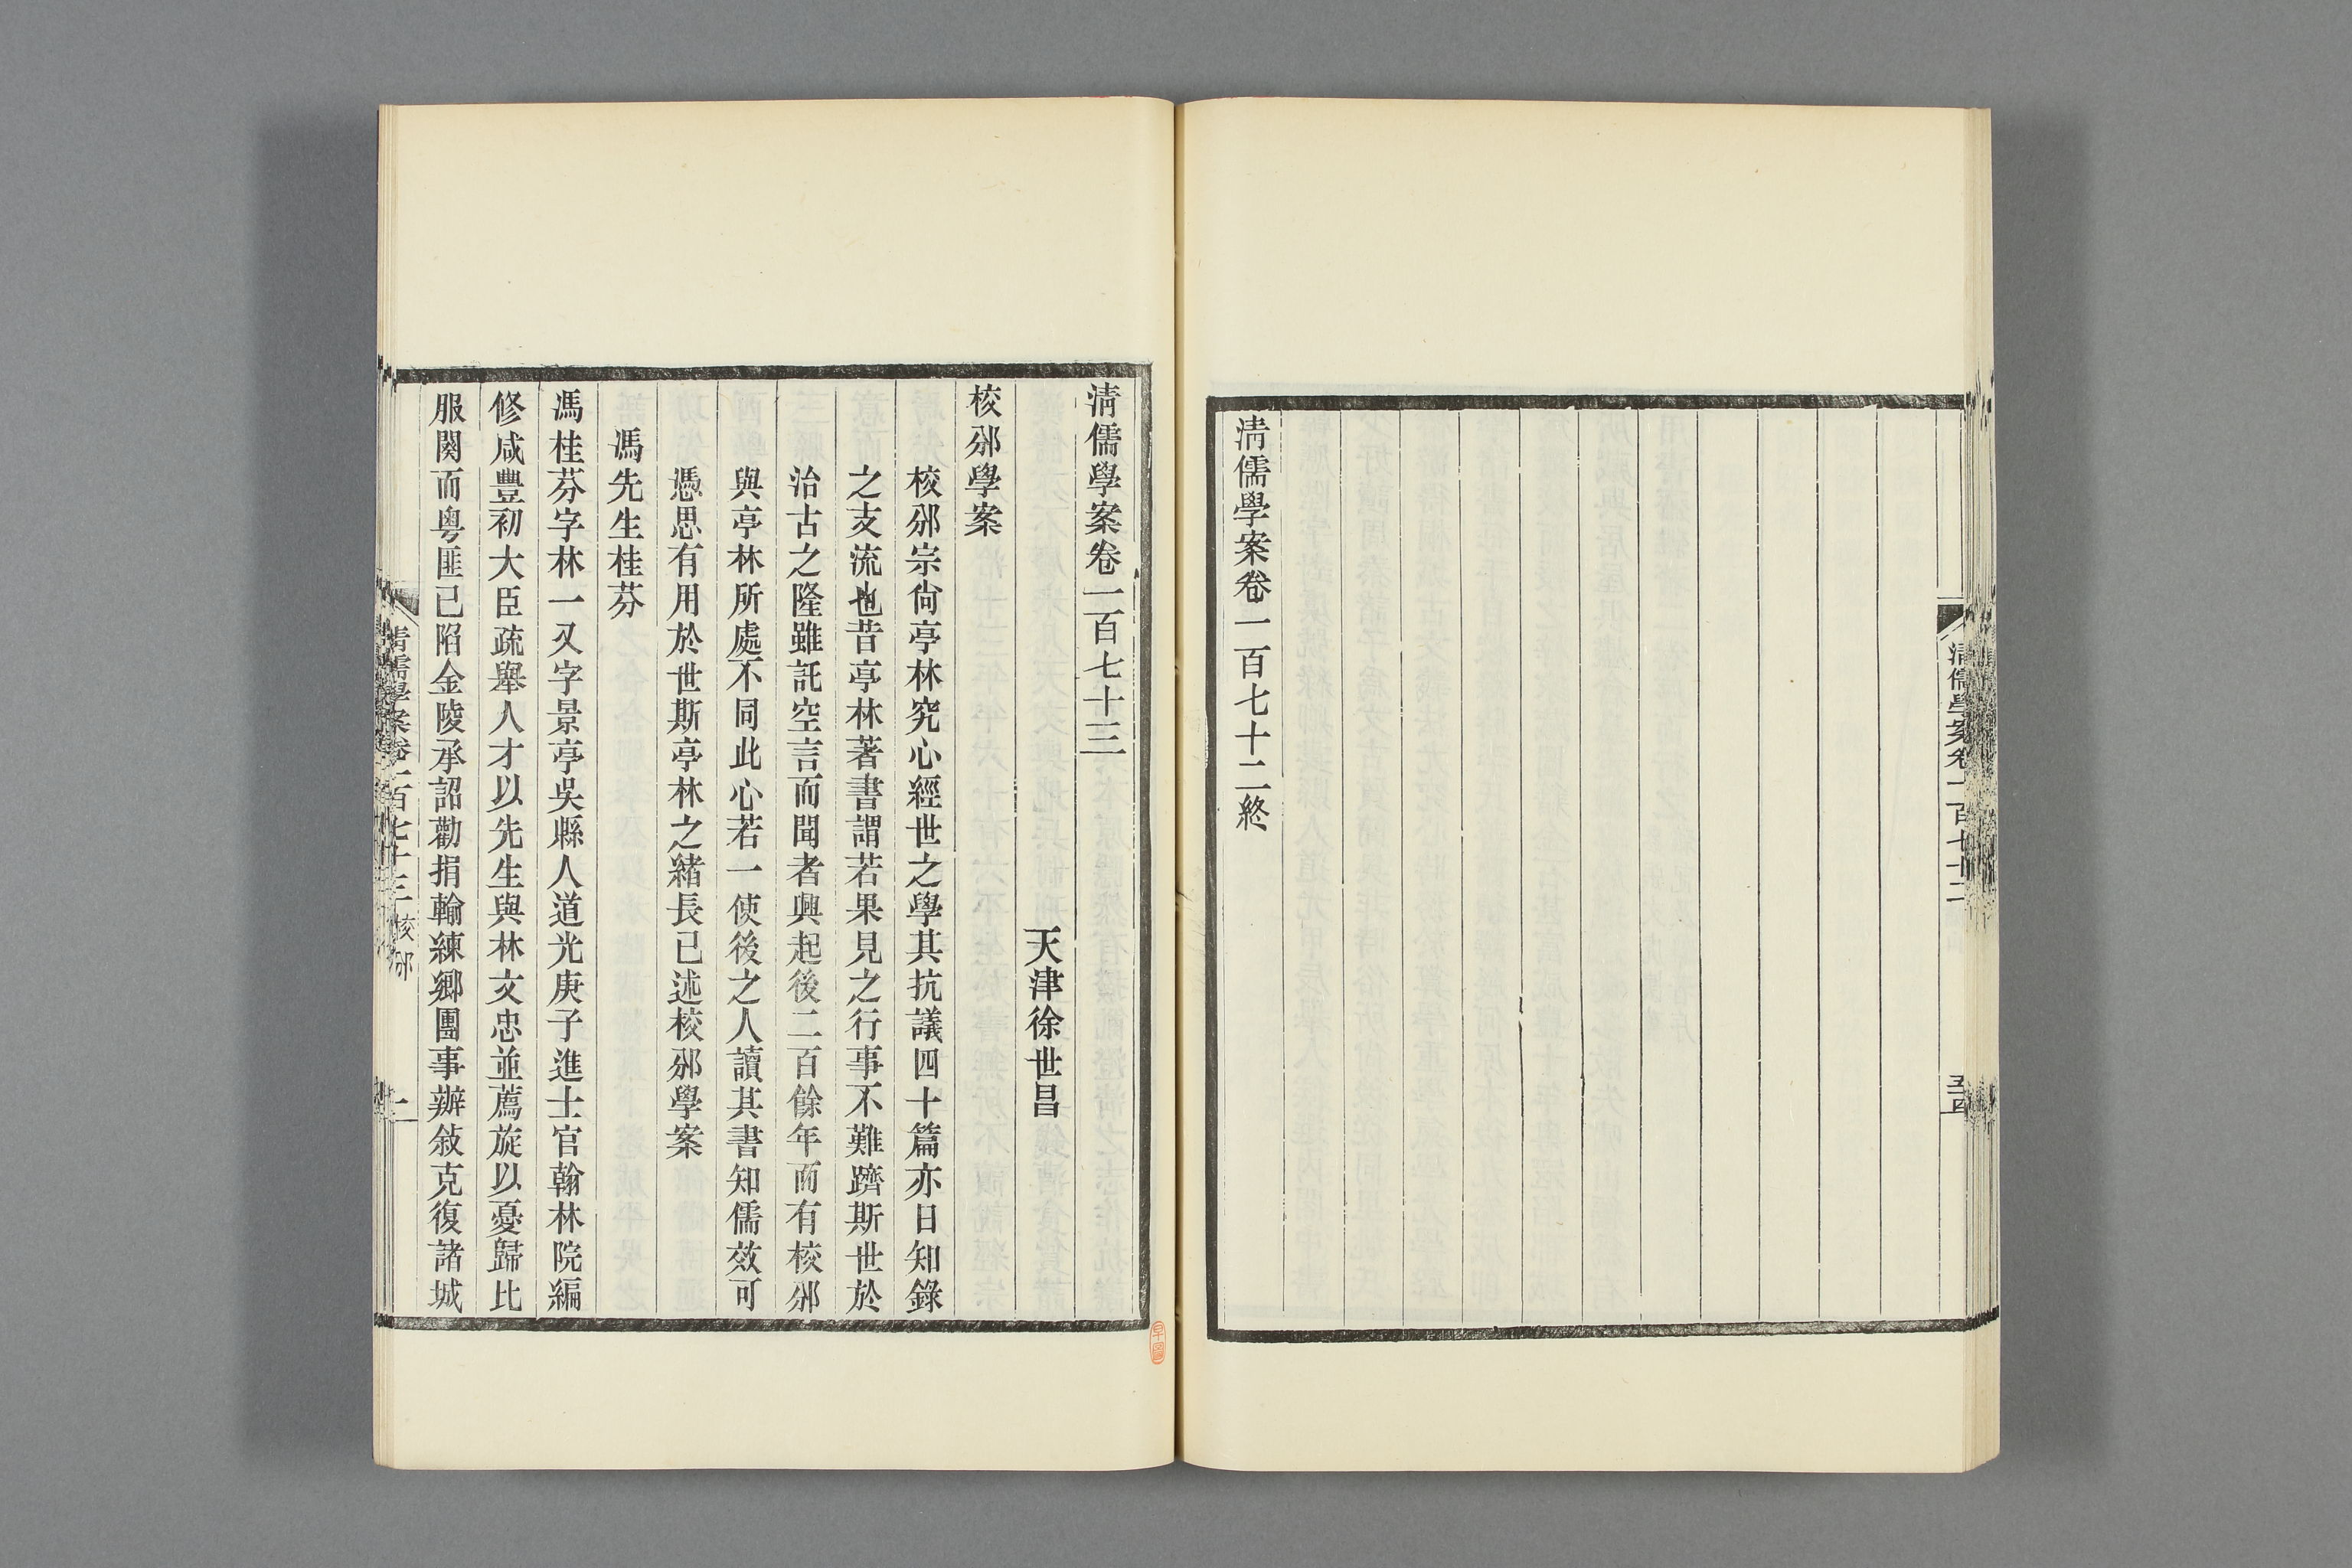 清儒學案卷一百七十二 五十四
清儒學案卷一百七十二終
清儒學案卷一百七十三
天津徐世昌
校邠學案
校邠宗尙亭林究心經世之學其抗議四十篇亦日知錄
之支流也昔亭林著書謂若果見之行事不難躋斯世於
治古之隆雖託空言而聞者興起後二百餘年而有校邠
與亭林所處不同此心若一使後之人讀其書知儒效可
憑思有用於世斯亭林之緒長已述校邠學案
馮先生桂芬
馮桂芬字林一又字景亭吳縣人道光庚子進士官翰林院編
修咸豐初大臣疏舉人才以先生與林文忠並薦旋以憂歸比
服闋而粵匪已陷金陵承詔勸捐輸練鄉團事辦敍克復諸城
清儒學案卷一百七十三 校邠 一